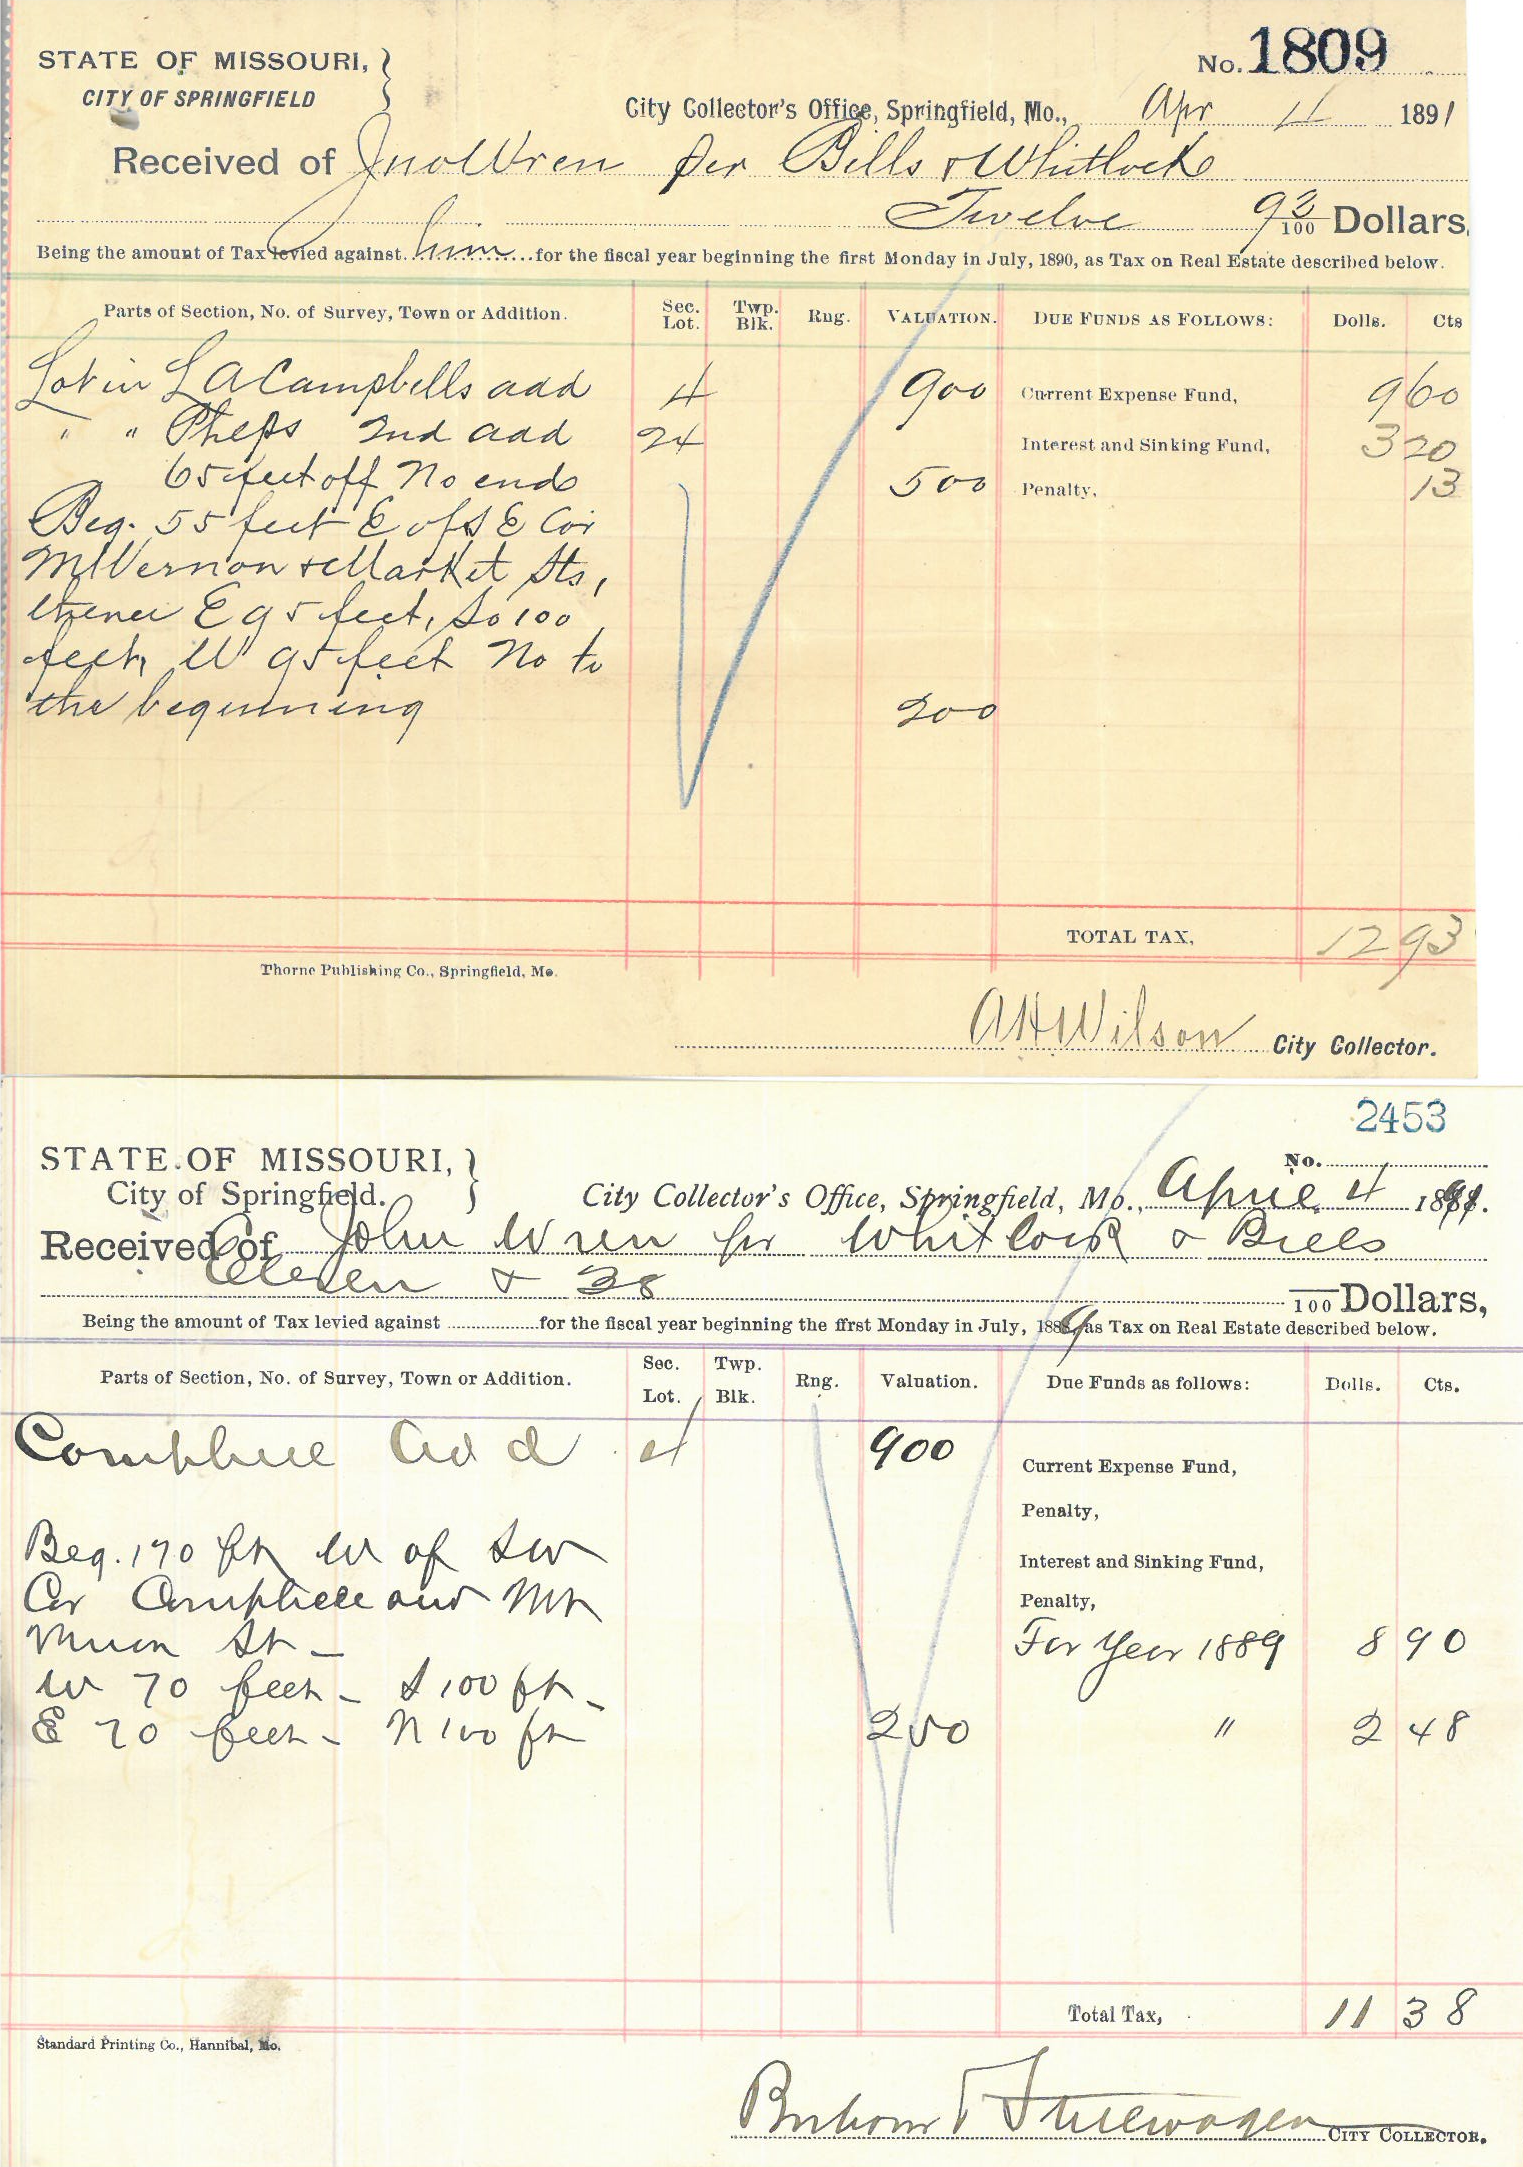 No. 1809
STATE OF MISSOURI, }
CITY OF SPRINGFIELD
City Collector's Office, Springfield, Mo., Apr 4 1891
Received of Jno Wren per Bills & Whitlock
Twelve 93/100 Dollars,
Being the amount of Tax levied against him for the fiscal year beginning the first Monday in July, 1890, as Tax on Real Estate described below.
Parts of Section, No. of Survey, Town or Addition. Sec. Lot. Twp. Blk. Rng. VALUATION. DUE FUNDS AS FOLLOWS: Dolls. Cts
Lot in L A Campbells add 4 900 Current Expense Fund, 9 60
" " Phelps 2nd add 24 Interest and Sinking Fund, 3 20
65 feet off No end 500 Penalty, 13
Beg. 55 feet E of S E Cor
Mt Vernon & Market Sts,
thence E 95 feet, So 100
feet, W 95 feet No to
the beginning 200
TOTAL TAX, 12 93
Thorne Publishing Co., Springfield, Mo.
A H Wilson City Collector.
2453
STATE OF MISSOURI, }
No.
City of Springfield.
City Collector's Office, Springfield, Mo., April 4 1891.
Received of John Wren for Whitlock & Bills
Eleven & 38 /100 Dollars,
Being the amount of Tax levied against for the fiscal year beginning the ffrst Monday in July, 1889, as Tax on Real Estate described below.
Parts of Section, No. of Survey, Town or Addition. Sec. Lot. Twp. Blk. Rng. Valuation. Due Funds as follows: Dolls. Cts.
Campbell Add 4 900 Current Expense Fund,
Penalty,
Beg. 170 ft W of SW Interest and Sinking Fund,
Cor Campbell and Mt Penalty,
St For Year 1889 8 90
W 70 feet - S 100 ft -
E 70 feet - N 100 ft 200 " 2 48
Total Tax, 11 38
Standard Printing Co., Hannibal, Mo.
CITY COLLECTOR.